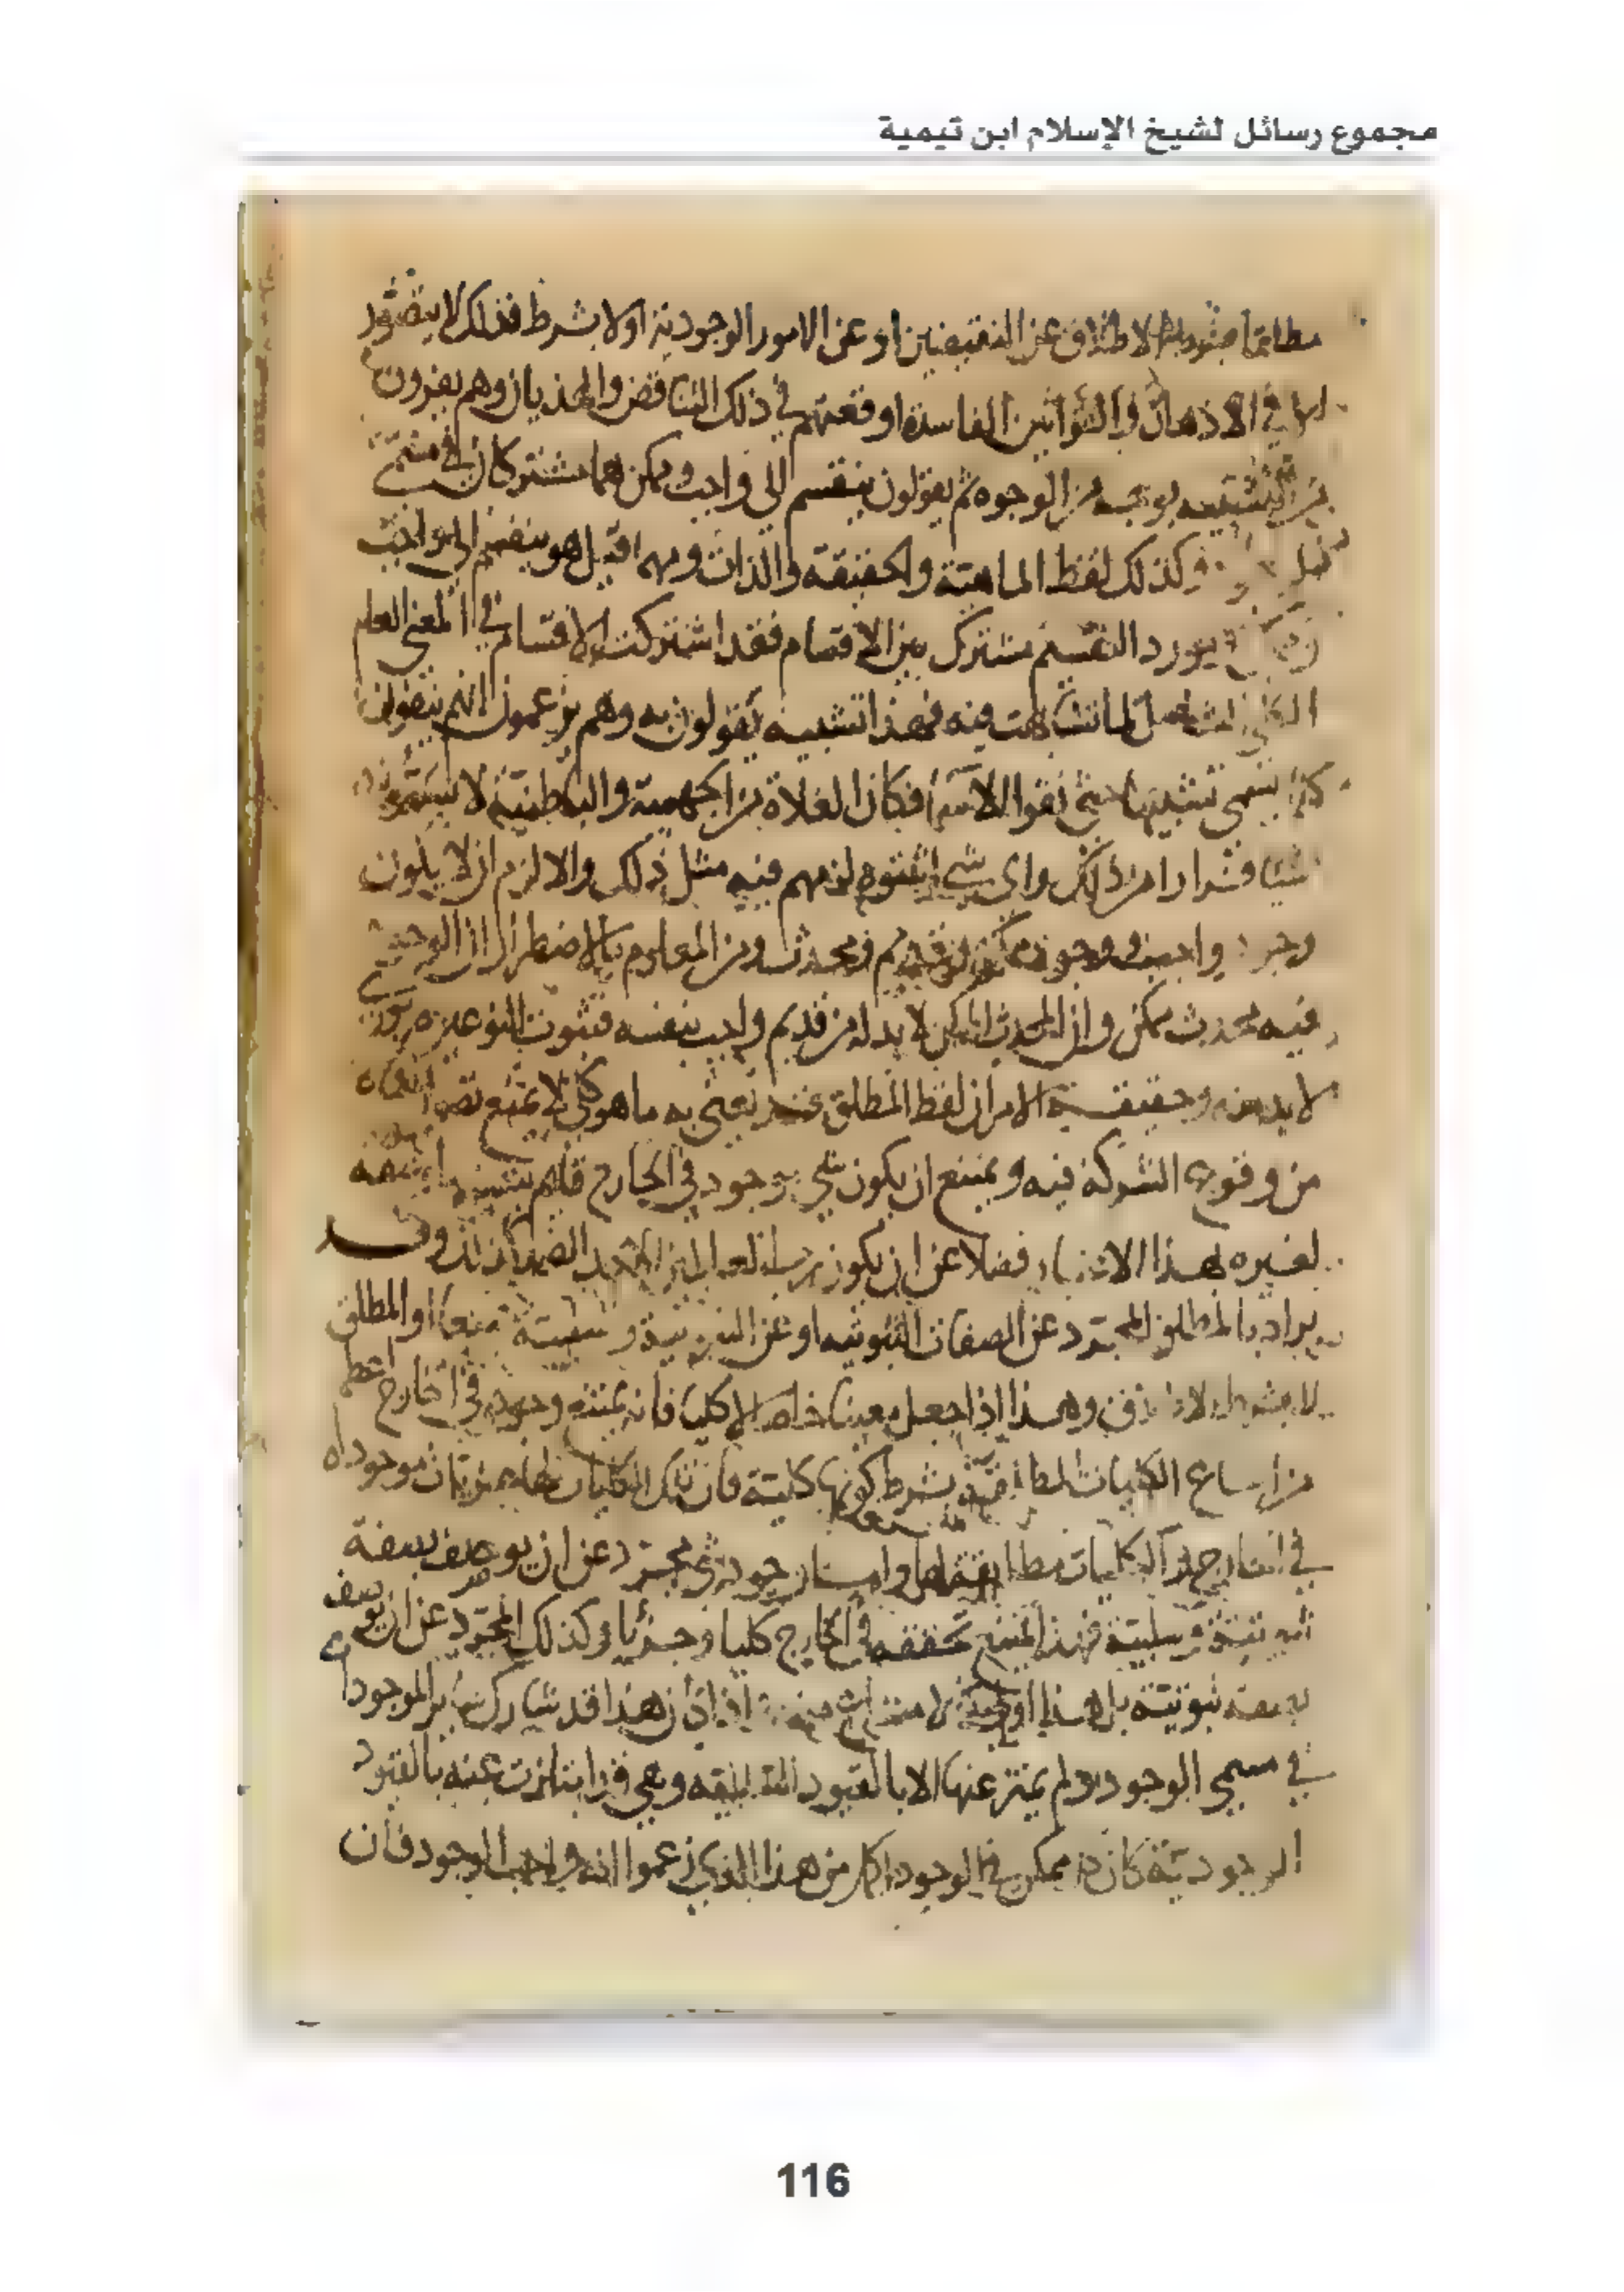 مجموع رسائل لشيخ الإسلام ابن تيمية
مطلقا بشرط الاطلاق عن النقيضين او عن الامور الوجودية او لا بشرط فذلك لا يتصور
الا في الاذهان والقوانين الفاسدة اوقعتهم في ذلك التناقض والهذيان وهم يفرون
من التشبيه بوجه من الوجوه ثم يقولون ينقسم الى واجب وممكن فهما مشتركان في مسمى
وكذلك لفظ الماهية والحقيقة والذات ومهما قيل هو ينقسم الى واجب
مورد التقسيم مشترك بين الاقسام فقد اشتركت الاقسام في المعنى العام
الكلي الشامل لما تشابهت فيه فهذا تشبيه يقولون به وهم يزعمون انهم ينفون
كلما يسمى تشبيها حتى نفوا الاسما فكان الغلاة من الجهمية والباطنية لا يسمونه
شيا فرارا من ذلك واى شي اثبتوه لزمهم فيه مثل ذلك والا لزم ان لا يكون
وجود واجب وممكن وقديم ومحدث ومن المعلوم بالاضطرار ان الوجود
فيه محدث ممكن وان المحدث الممكن لا بد له من قديم واجب بنفسه فثبوت النوعين
لا بد منه وحقيقة الامر ان لفظ المطلق قد يعنى به ما هو كلي لا يمنع تصور معناه
من وقوع الشركة فيه ويمتنع ان يكون شي موجود في الخارج قايم بنفسه
لغيره بهذا الاعتبار فضلا عن ان يكون رب العالمين الاحد الصمد كذلك وقد
يراد بالمطلق المجرد عن الصفات الثبوتيه او عن الثبوتية والسلبية جميعا او المطلق
لا بشرط الاطلاق وهذا اذا جعل معينا خاصا لا كليا فانه يمتنع وجوده في الخارج اعظم
من امتناع الكليات المطلقة بشرط كونها كلية فان تلك الكليات لها جزئيات موجودة
في الخارج والكليات مطابقة لها واما وجود شي مجرد عن ان يوصف بصفة
ثبوتية وسلبية فهذا يمتنع تحققه في الخارج كليا وجزئيا وكذلك المجرد عن ان يوصف
بصفة ثبوتية بل هذا اولى بالامتناع منه اذا كان هذا قد شارك ساير الموجودات
في مسمى الوجود ولم يمتز عنها الا بالقيود السلبيه وهي قد امتازت عنه بالقيود
الوجودية كان كل ممكن في الوجود اكمل من هذا الذي زعموا انه واجب الوجود فان
116